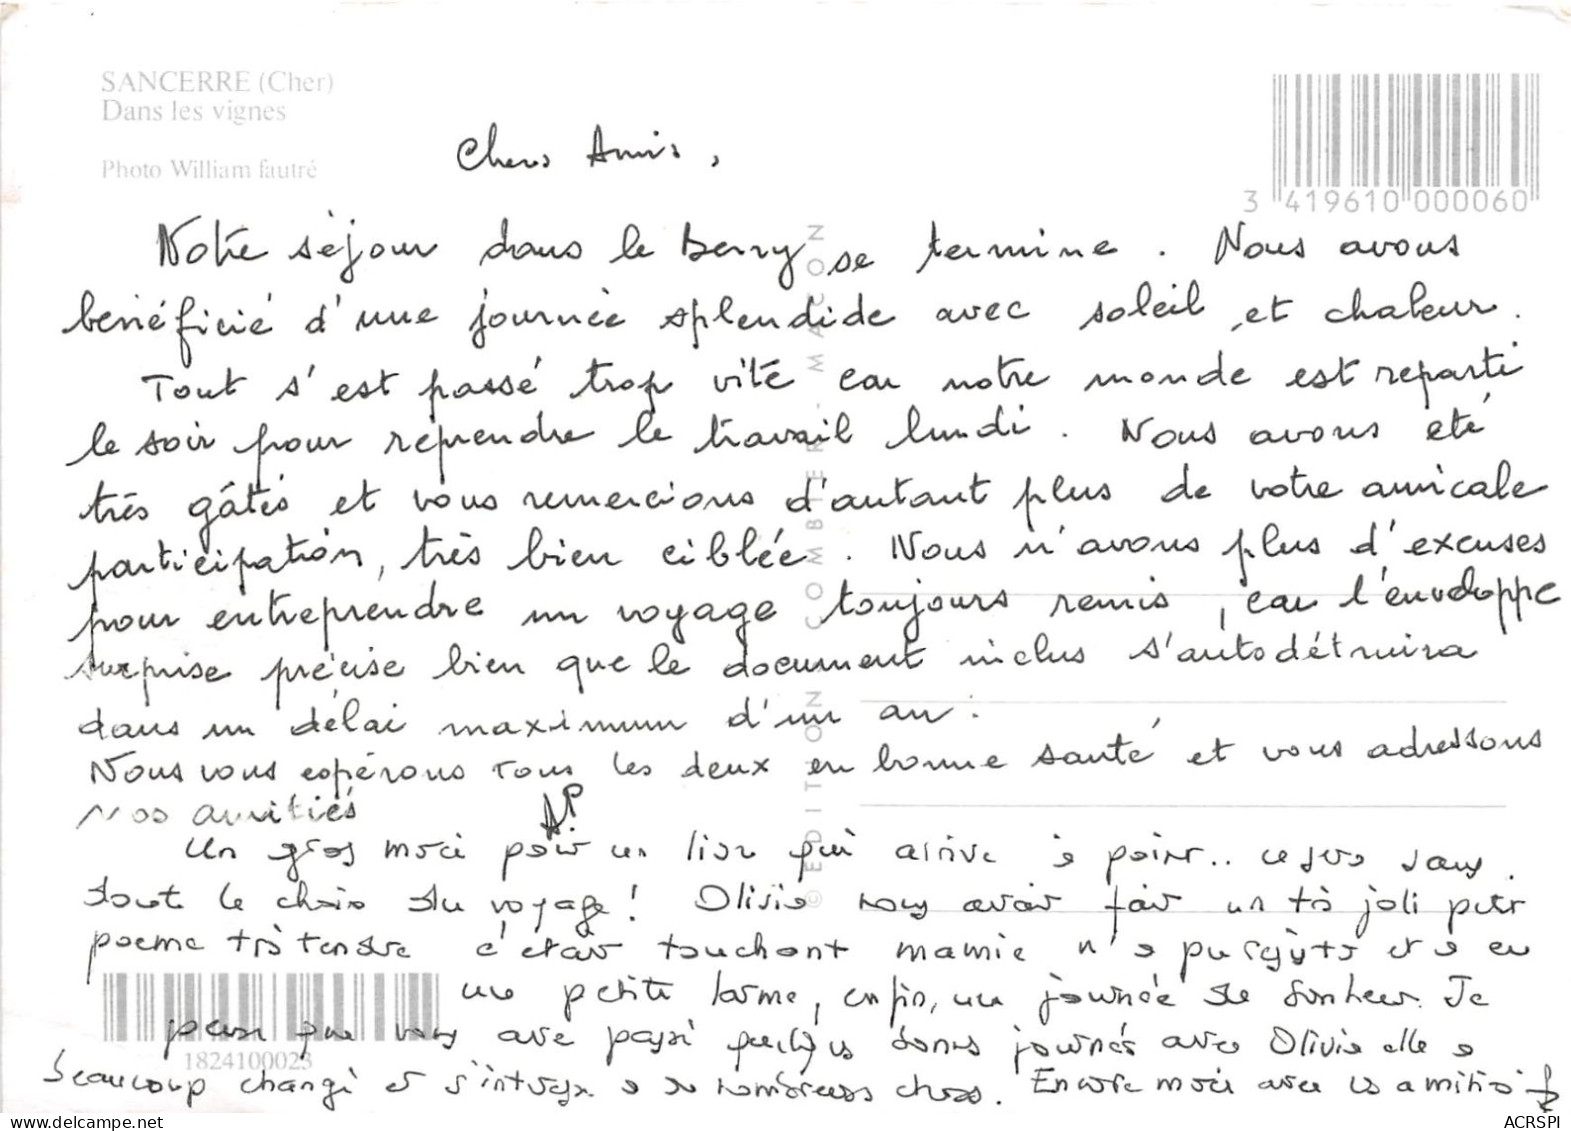 SANCERRE (Cher)
Dans les vignes
Photo William fautré
3 419610 000060
© EDITION COMBIER. MACON
Chers Amis,
Notre séjour dans le Berry se termine. Nous avons
bénéficié d'une journée splendide avec soleil et chaleur.
Tout s'est passé trop vite car notre monde est reparti
le soir pour reprendre le travail lundi. Nous avons été
très gâtés et vous remercions d'autant plus de votre amicale
participation, très bien ciblée. Nous n'avons plus d'excuses
pour entreprendre un voyage toujours remis, car l'enveloppe
surprise précise bien que le document inclus s'autodétruira
dans un délai maximum d'un an.
Nous vous espérons tous les deux en bonne santé et vous adressons
nos amitiés AP.
Un gros merci pour un livre qui arrive à point.. ce sera sans
doute le choix du voyage! Olivia nous avait fait un très joli petit
poeme très tendre c'était touchant mamie n'a pu et a eu
une petite larme, enfin, une journée de bonheur. Je
pense que vous avez passé quelques bonnes journées avec Olivia elle a
beaucoup changé et s'intéresse a de nombreuses choses. Encore merci avec amitié
1824100023
ACRSPI